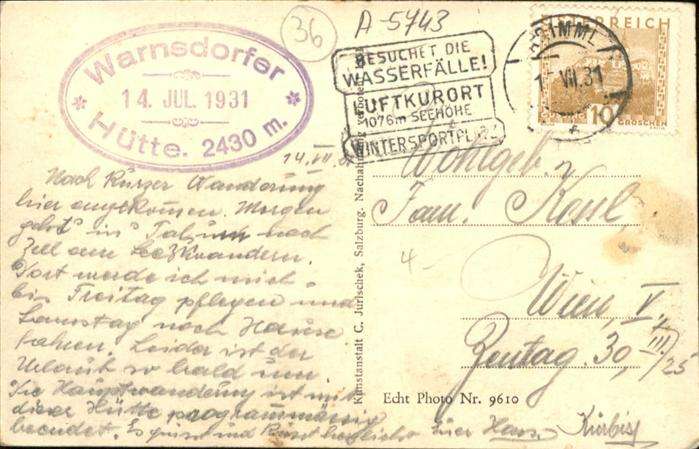 36
A-5743
Warnsdorfer
14. JUL. 1931
Hütte. 2430 m.
BESUCHET DIE
WASSERFÄLLE!
LUFTKURORT
1076 m SEEHÖHE
WINTERSPORTPLATZ
KRIMML
VII. 31
ÖSTERREICH
10
GROSCHEN
14. VII.
Nach kurzer Wanderung
hier angekommen. Morgen
geht's ins Tal nach
Zell am See wandern.
Dort werde ich mich
bis Freitag pflegen und
Samstag nach Hause
fahren. Leider ist der
Urlaub so bald um.
Die Hauptwanderung ist mit
dieser Hütte programmässig
beendet. Es grüsst und küsst herzlichst Euer Hans
Kunstanstalt C. Jurischek, Salzburg. Nachahmung verboten.
Wohlgeb.
Fam. Kossl,
4-
Wien, V.
Zentag. 30,
III/25
Echt Photo Nr. 9610
Kürbis